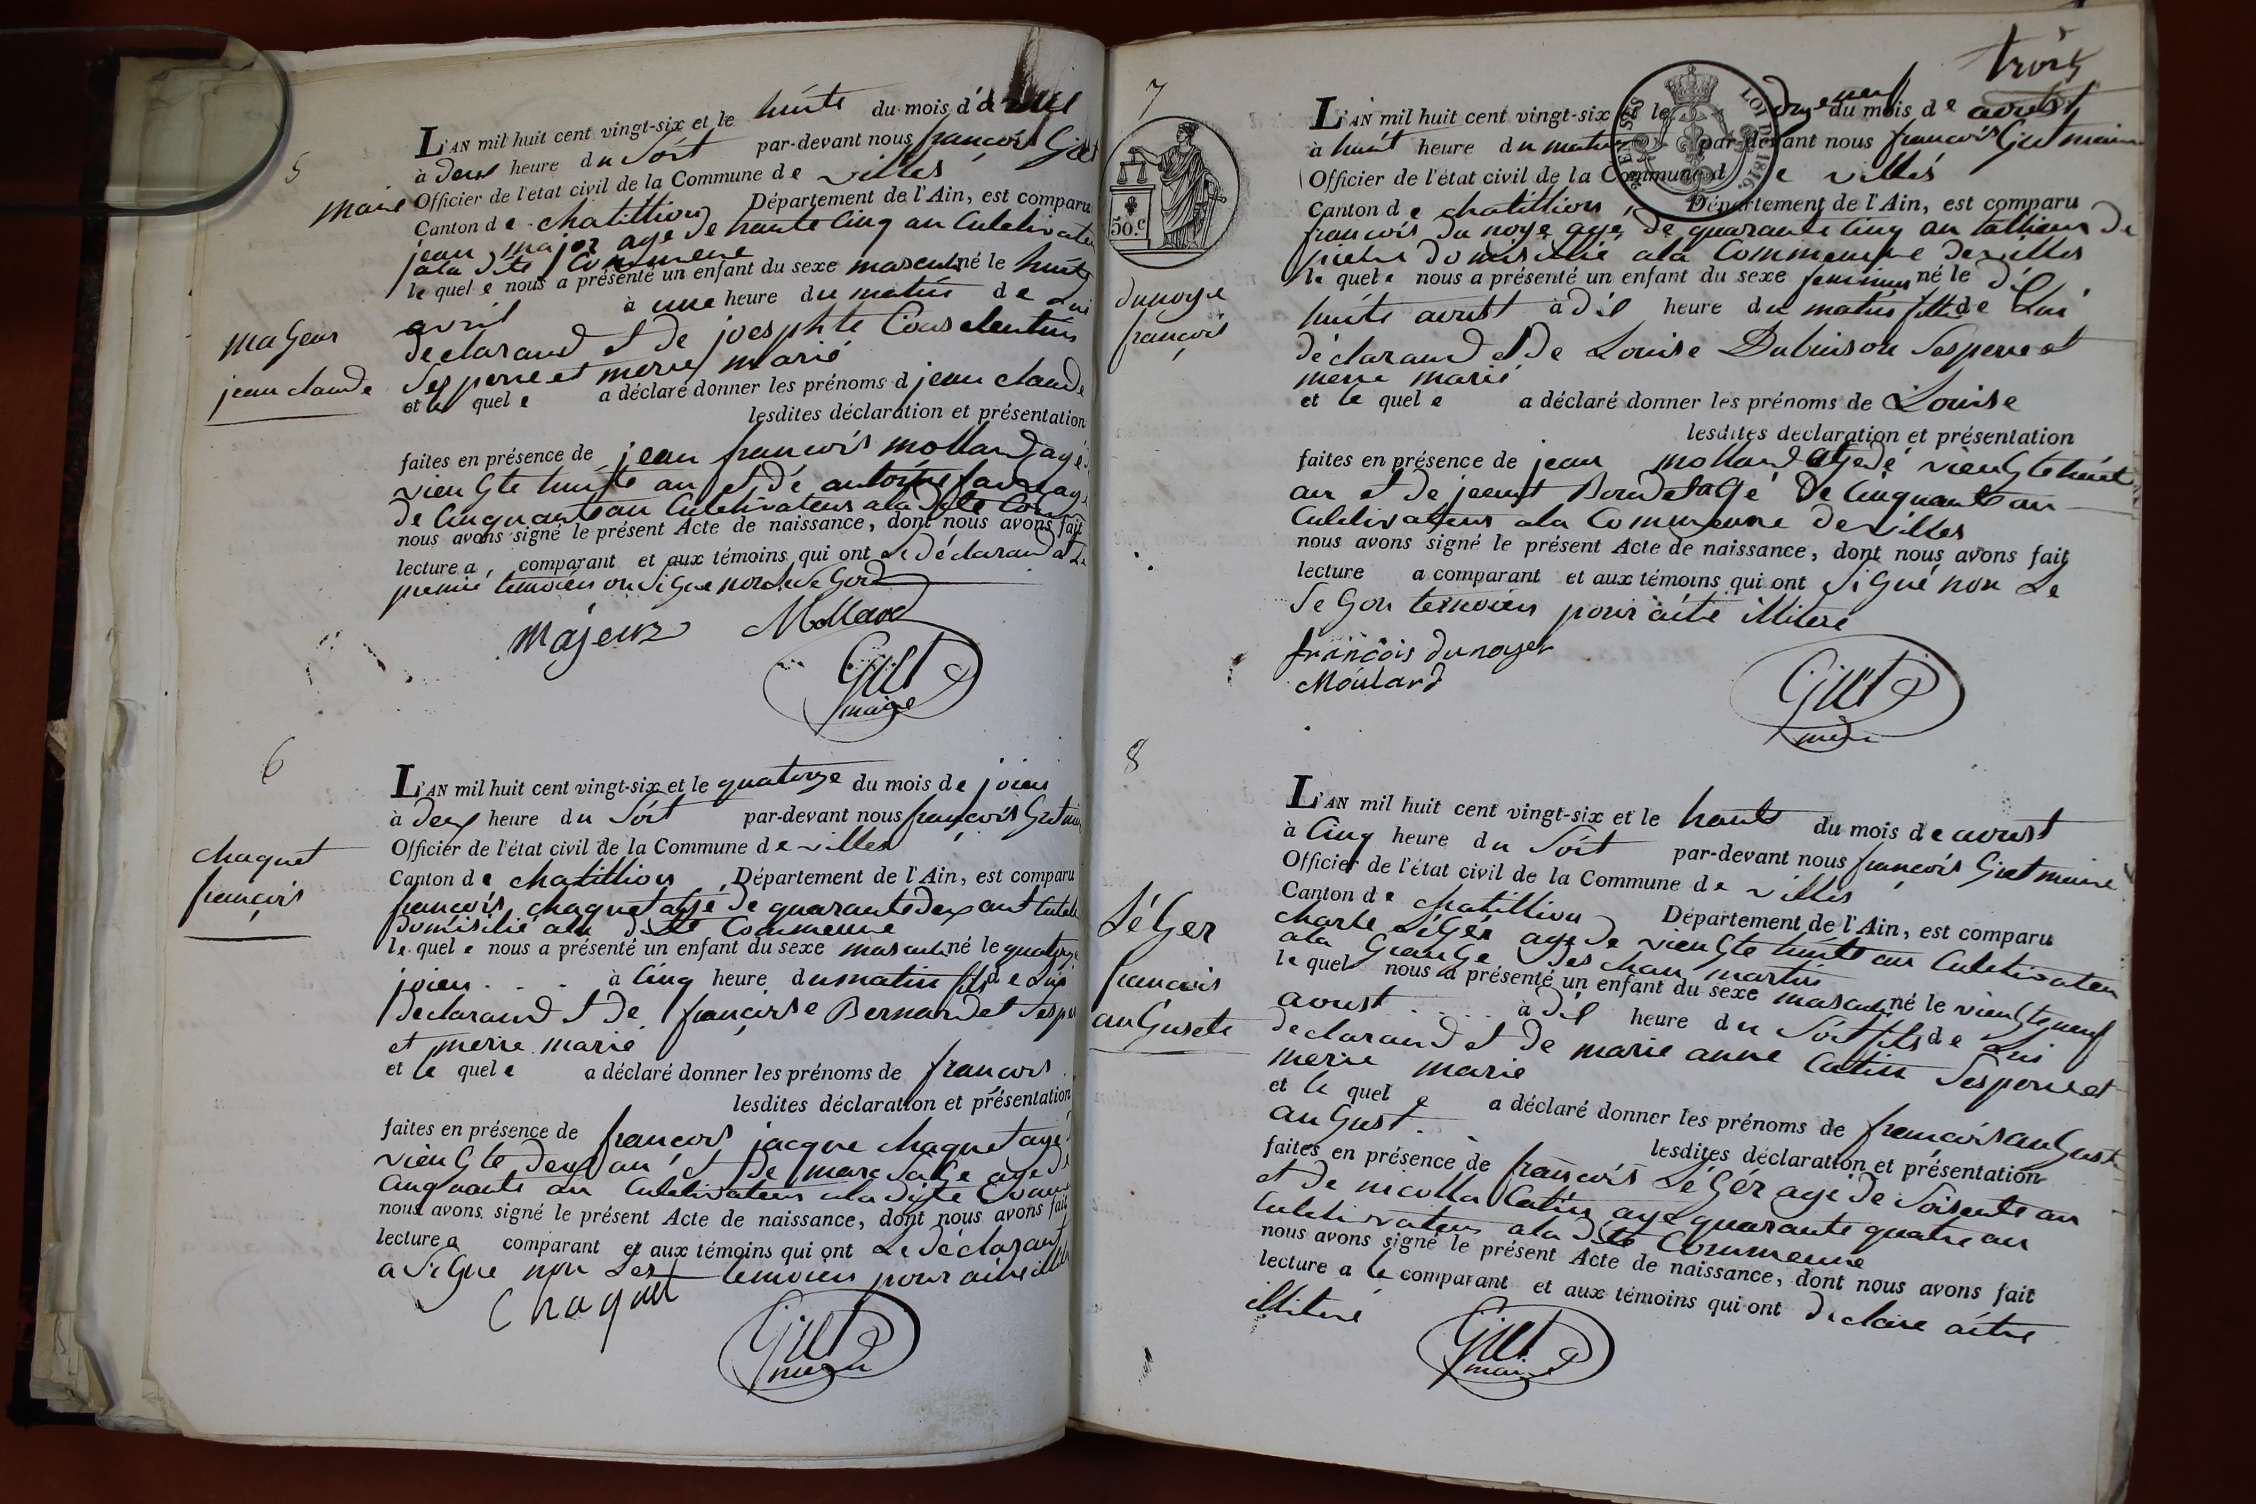 5
L'AN mil huit cent vingt-six et le huite du mois d'avril
à deux heure du Soit par-devant nous françois Gitt
maire Officier de l'état civil de la Commune de villes
Canton de chatillion Département de l'Ain, est comparu
jean major age de trante Cinq an Culctivateu
ala dite Commene
le quel e nous a présenté un enfant du sexe masculin né le huite
avril à une heure du matin de Lui
declarand et de joesphte
Ses perre et merre marié
et le quel e a déclaré donner les prénoms d jean claude
lesdites déclaration et présentation
faites en présence de jean francois molland agé
viengte huite an et dé antoine agé
de Cinquante an Culctivateur ala dite Com
nous avons signé le présent Acte de naissance, dont nous avons fait
lecture a, comparant et aux témoins, qui ont Le déclarand et Le
premié temoien on Signe non le Segord
Majeur Molland
Gitt
maire
majeur
jean claude
6
L'AN mil huit cent vingt-six et le quatorze du mois de joien
à deux heure du Soit par-devant nous françois Gitt
Officier de l'état civil de la Commune de villes
Canton de chatillion Département de l'Ain, est comparu
francois chaquet agé de quarante deux ant
Domisilié ala dite Commenne
le quel e nous a présenté un enfant du sexe masculin né le quatorze
joien . . . à Cinq heure du matin fils de Lui
declarand et de françoise Bernardet Ses per
et merre marié
et le quel e a déclaré donner les prénoms de francois
lesdites déclaration et présentation
faites en présence de françois jacque chaquet agé
viengte deux an et de marc age de
Cinquante an Culctivateur ala dite Comm
nous avons signé le présent Acte de naissance, dont nous avons fait
lecture a comparant et aux témoins qui ont Le déclarant
a Signe non Les temoien pour aitre
Chaquet
Gitt
maire
chaquet
françois
trois
7
50.c
LOI DE 1816.
L'AN mil huit cent vingt-six et le du mois de avoust
à huit heure du matin par-devant nous francois Gitt maire
Officier de l'état civil de la Commune de villes
Canton de chatillion, Département de l'Ain, est comparu
francois du noye agé de quarante Cinq an tallieur de
pierre domisilié ala Commenne de villes
le quel e nous a présenté un enfant du sexe feminin né le dé
huite avoust à dé heure du matin fille de Lui
déclarand et de Louise Dubuison Ses perre et
merre marié
et le quel e a déclaré donner les prénoms de Louise
lesdites déclaration et présentation
faites en présence de jean molland agedé viengte huit
an et de Bondet agé de Cinquante an
Culctivateur ala Commenne de villes
nous avons signé le présent Acte de naissance, dont nous avons fait
lecture a comparant et aux témoins qui ont Signé non Le
Segon temoien pour aitre illitere
françois dunoyer
Moulard
Gitt
maire
dunoye
françois
8
L'AN mil huit cent vingt-six et le trante du mois de avoust
à Cinq heure du Soit par-devant nous francois Gitt maire
Officier de l'état civil de la Commune de villes
Canton de chatillion Département de l'Ain, est comparu
charle Léger age de viengte huite an Culctivateu
ala Grange des chan martin
le quel nous a présenté un enfant du sexe masculin né le viengte neuf
avoust . . . . à dé heure du Soit fils de Lui
declarand et de marie anne Catin Ses perre et
merre marie
et le quel e a déclaré donner les prénoms de francois auGuste
auGust .
lesdites déclaration et présentation
faites en présence de francois Léger agé de Soisente an
et de nicolla Catin age quarante quatre an
Culctivateur ala dite Commenne
nous avons signé le présent Acte de naissance, dont nous avons fait
lecture a le comparant et aux témoins qui ont declare aitre
illitere
Gitt
maire
LéGer
francois
auGuste